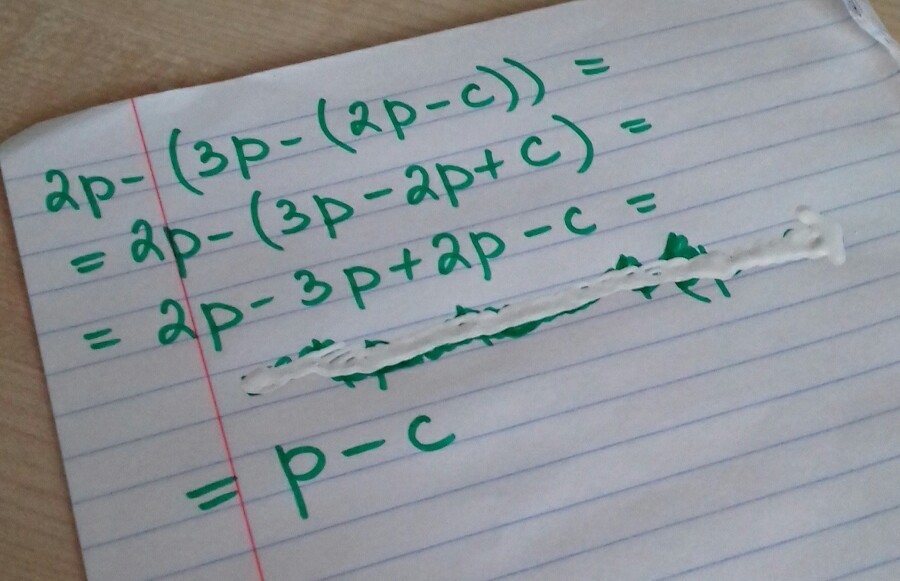 2p-(3p-(2p-c))=
=2p-(3p-2p+c)=
=2p-3p+2p-c=
=p-c